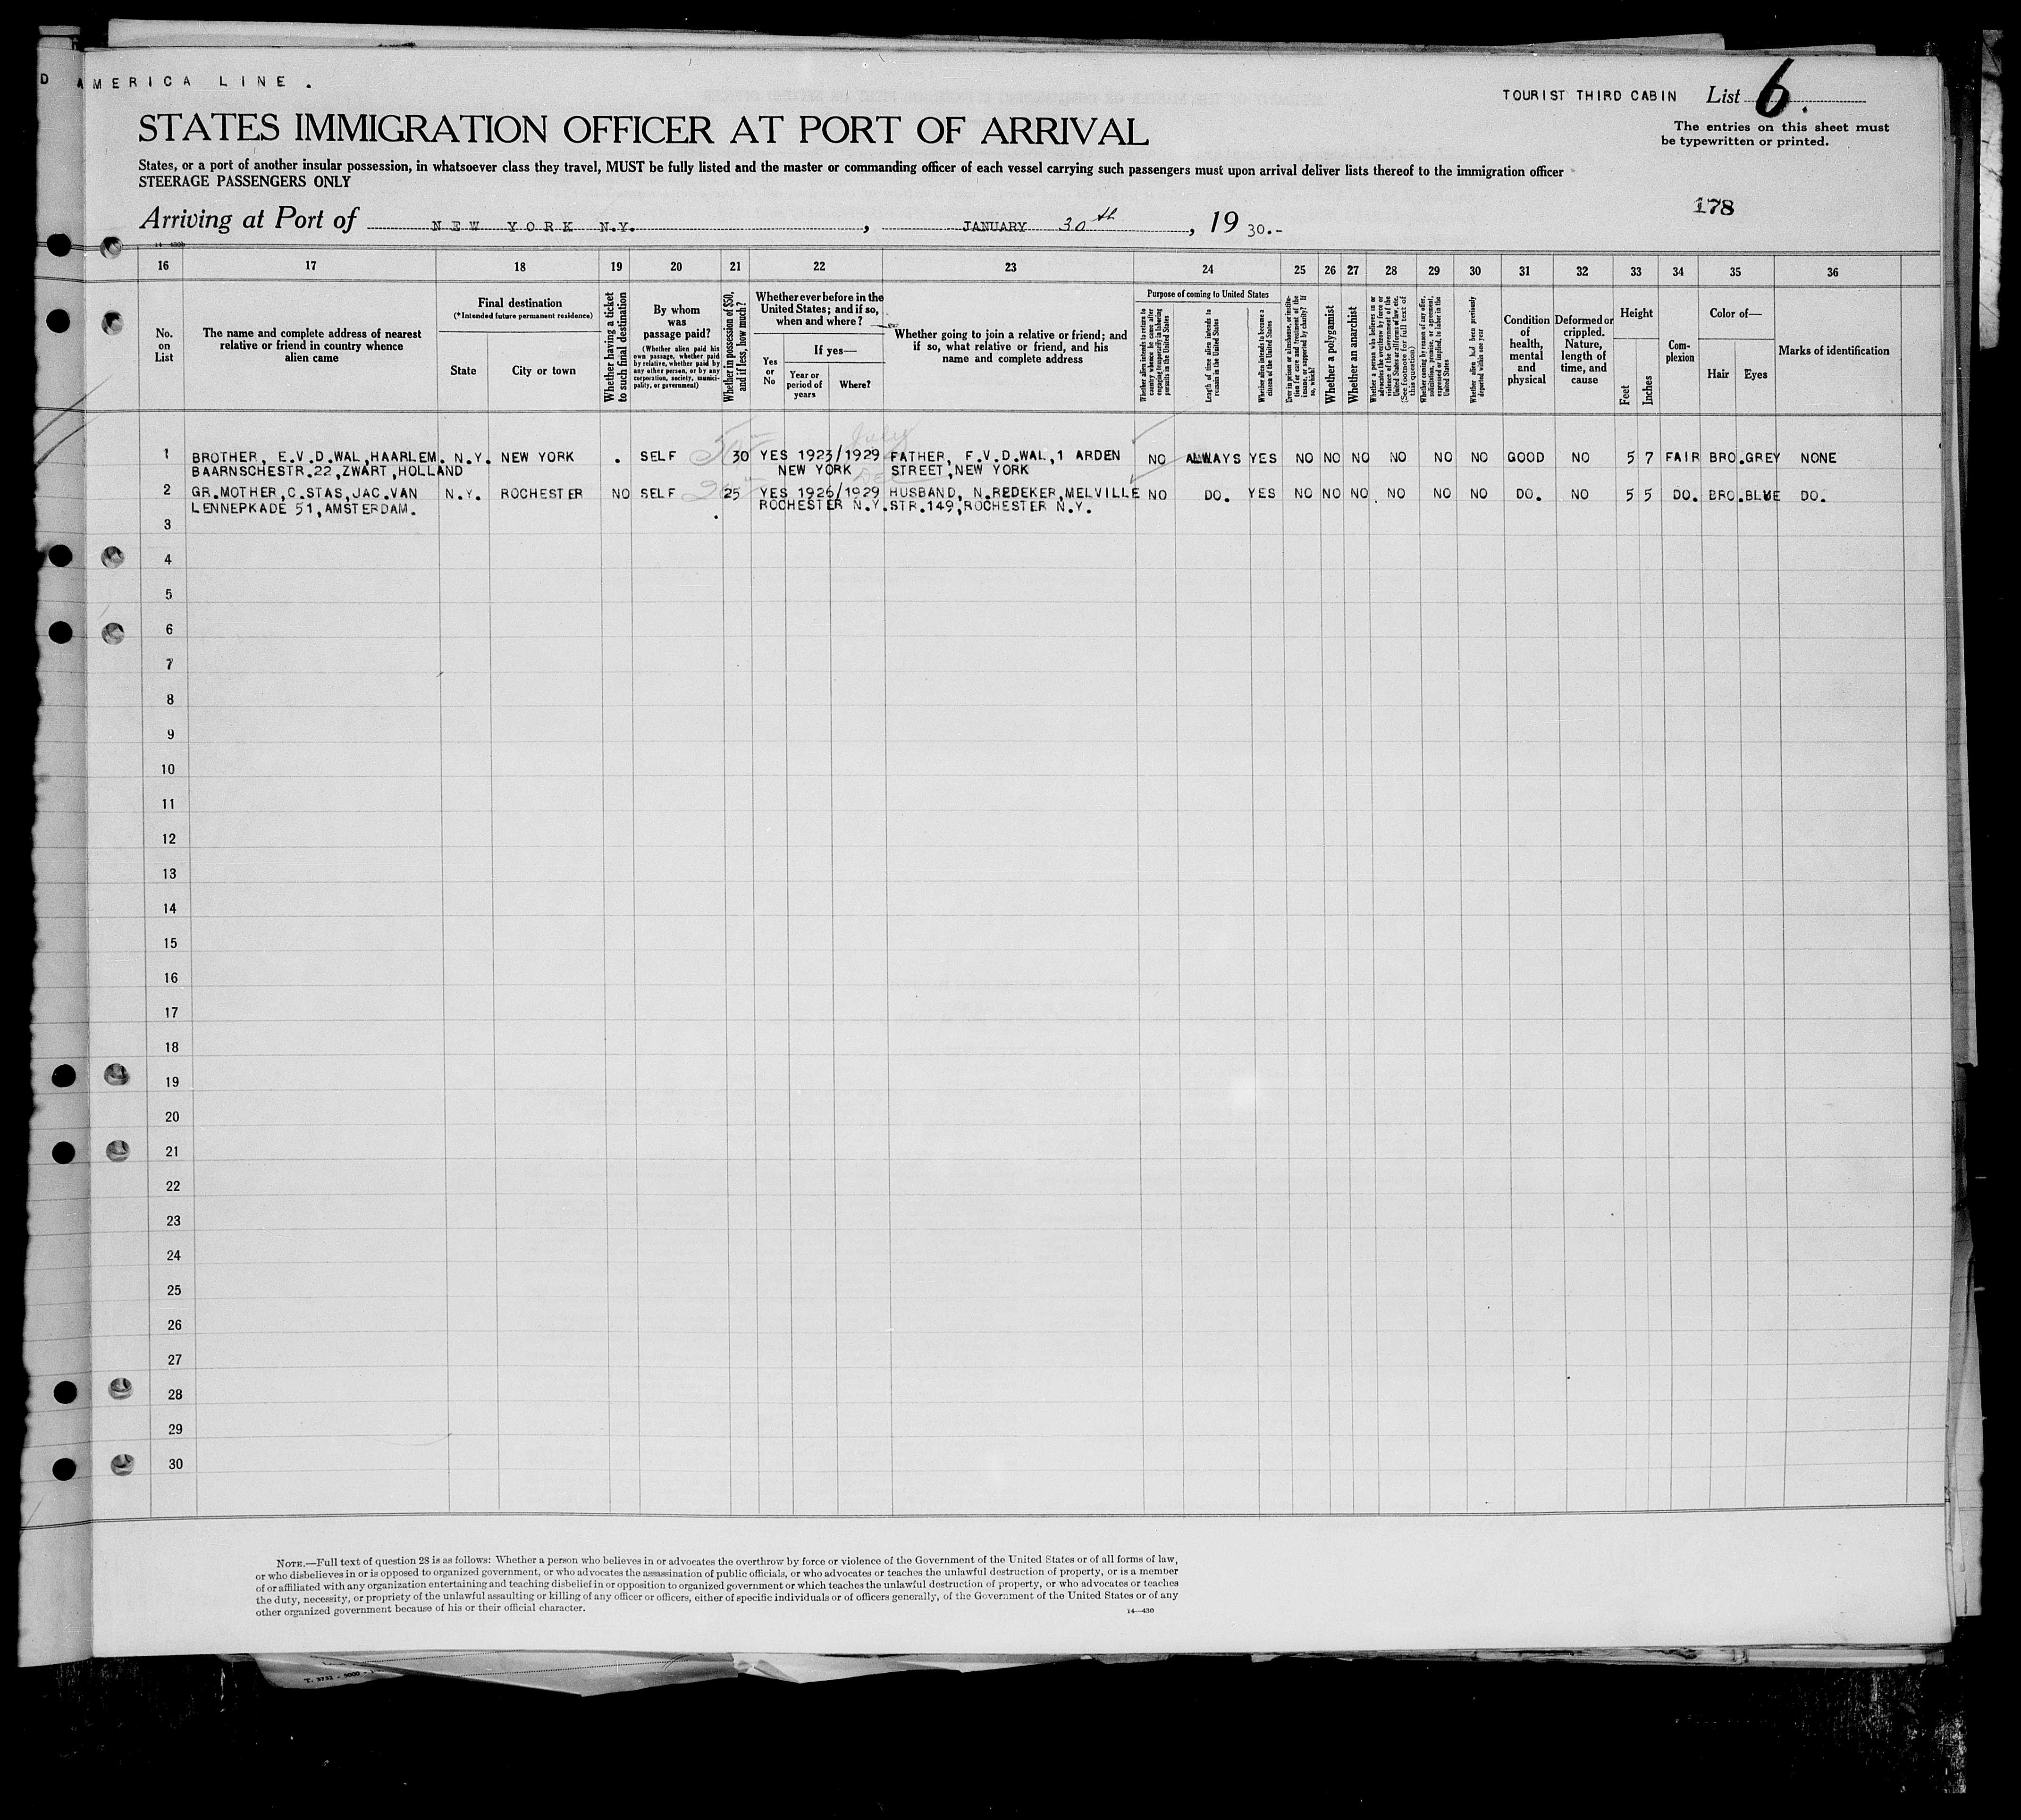 D AMERICA LINE.
TOURIST THIRD CABIN List 6.
STATES IMMIGRATION OFFICER AT PORT OF ARRIVAL
The entries on this sheet must
be typewritten or printed.
States, or a port of another insular possession, in whatsoever class they travel, MUST be fully listed and the master or commanding officer of each vessel carrying such passengers must upon arrival deliver lists thereof to the immigration officer
STEERAGE PASSENGERS ONLY
178
Arriving at Port of NEW YORK N.Y., JANUARY 30th, 1930.-
16 17 18 19 20 21 22 23 24 25 26 27 28 29 30 31 32 33 34 35 36
No. on List
The name and complete address of nearest relative or friend in country whence alien came
Final destination
(*Intended future permanent residence)
State
City or town
Whether having a ticket to such final destination
By whom was passage paid?
(Whether alien paid his own passage, whether paid by relative, whether paid by any other person, or by any corporation, society, municipality, or government)
Whether in possession of $50, and if less, how much?
Whether ever before in the United States; and if so, when and where?
Yes or No
If yes—
Year or period of years
Where?
Whether going to join a relative or friend; and if so, what relative or friend, and his name and complete address
Purpose of coming to United States
Whether alien intends to return to country whence he came after engaging temporarily in laboring pursuits in the United States
Length of time alien intends to remain in the United States
Whether alien intends to become a citizen of the United States
Ever in prison or almshouse, or institution for care and treatment of the insane, or supported by charity? If so, which?
Whether a polygamist
Whether an anarchist
Whether a person who believes in or advocates the overthrow by force or violence of the Government of the United States or all forms of law, etc. (See footnote for full text of this question)
Whether coming by reason of any offer, solicitation, promise, or agreement, expressed or implied, to labor in the United States
Whether alien had been previously deported within one year
Condition of health, mental and physical
Deformed or crippled. Nature, length of time, and cause
Height
Feet
Inches
Complexion
Color of—
Hair
Eyes
Marks of identification
1 BROTHER, E.V.D.WAL,HAARLEM. N.Y. NEW YORK . SELF 30 YES 1923/1929 July FATHER, F.V.D.WAL,1 ARDEN NO ALWAYS YES NO NO NO NO NO NO GOOD NO 5 7 FAIR BRO.GREY NONE
BAARNSCHESTR.22,ZWART,HOLLAND NEW YORK STREET,NEW YORK
2 GR.MOTHER,C.STAS,JAC.VAN N.Y. ROCHESTER NO SELF 25 YES 1926/1929 HUSBAND, N.REDEKER,MELVILLE NO DO. YES NO NO NO NO NO NO DO. NO 5 5 DO. BRO.BLUE DO.
LENNEPKADE 51,AMSTERDAM. ROCHESTER N.Y. STR.149,ROCHESTER N.Y.
3
4
5
6
7
8
9
10
11
12
13
14
15
16
17
18
19
20
21
22
23
24
25
26
27
28
29
30
NOTE.—Full text of question 28 is as follows: Whether a person who believes in or advocates the overthrow by force or violence of the Government of the United States or of all forms of law,
or who disbelieves in or is opposed to organized government, or who advocates the assassination of public officials, or who advocates or teaches the unlawful destruction of property, or is a member
of or affiliated with any organization entertaining and teaching disbelief in or opposition to organized government or which teaches the unlawful destruction of property, or who advocates or teaches
the duty, necessity, or propriety of the unlawful assaulting or killing of any officer or officers, either of specific individuals or of officers generally, of the Government of the United States or of any
other organized government because of his or their official character.
14—430